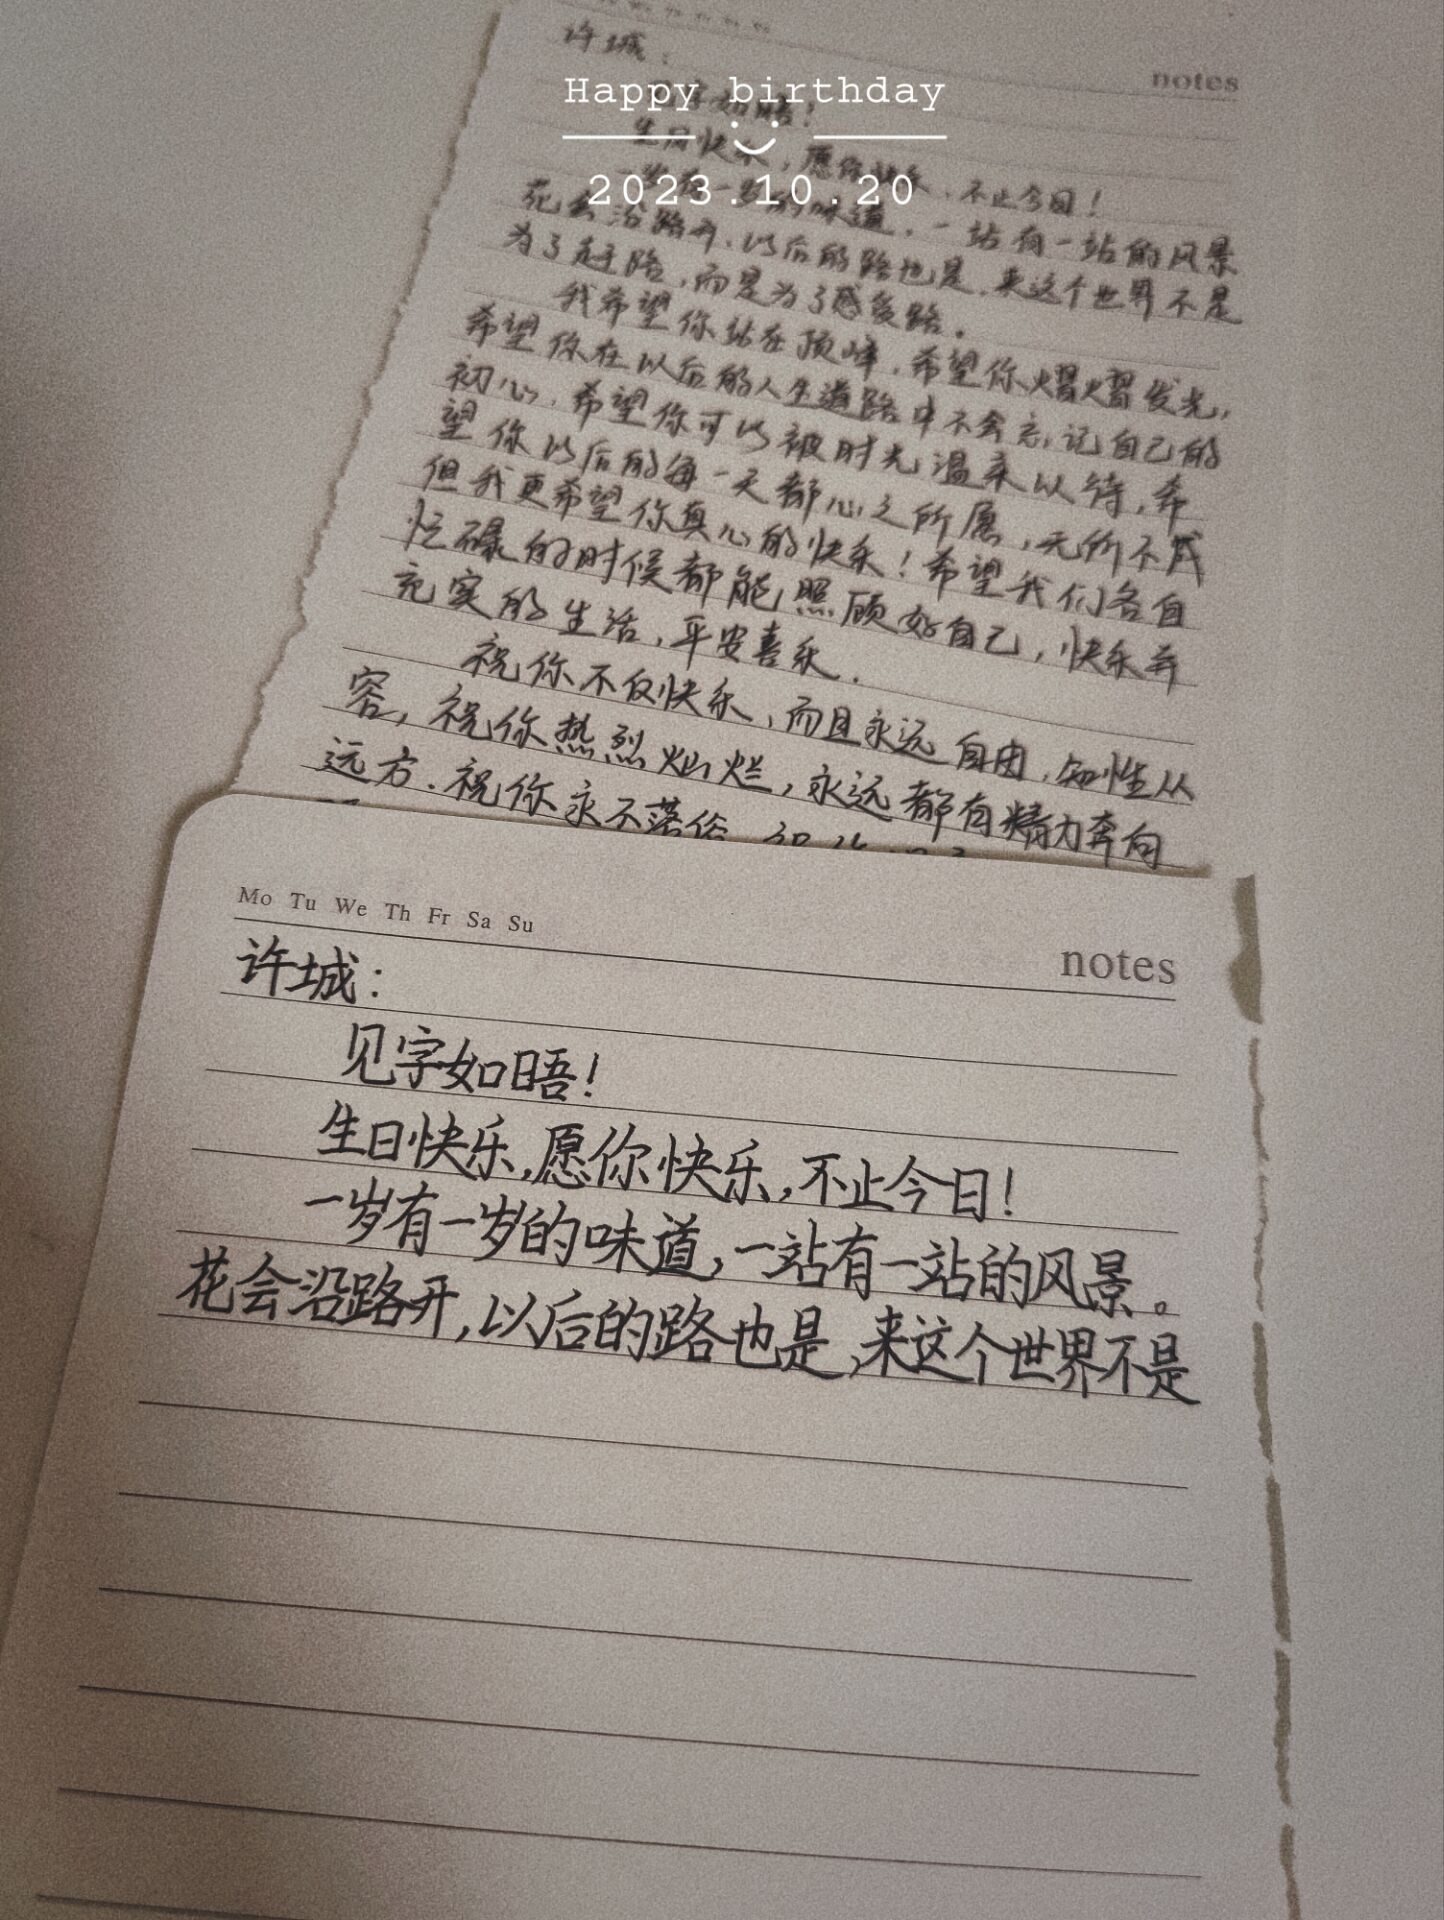 许城：
notes
Happy birthday
2023.10.20
见字如晤！
生日快乐，愿你快乐，不止今日！
一岁有一岁的味道，一站有一站的风景
花会沿路开，以后的路也是，来这个世界不是
为了赶路，而是为了感受路。
我希望你站在顶峰，希望你熠熠发光，
希望你在以后的人生道路中不会忘记自己的
初心，希望你可以被时光温柔以待，希
望你以后的每一天都心之所愿，无所不成
但我更希望你真心的快乐！希望我们各自
忙碌的时候都能照顾好自己，快乐并
充实的生活，平安喜乐。
祝你不仅快乐，而且永远自由，知性从
容，祝你热烈灿烂，永远都有精力奔向
远方。祝你永不落俗
Mo Tu We Th Fr Sa Su
notes
许城：
见字如晤！
生日快乐，愿你快乐，不止今日！
一岁有一岁的味道，一站有一站的风景。
花会沿路开，以后的路也是，来这个世界不是